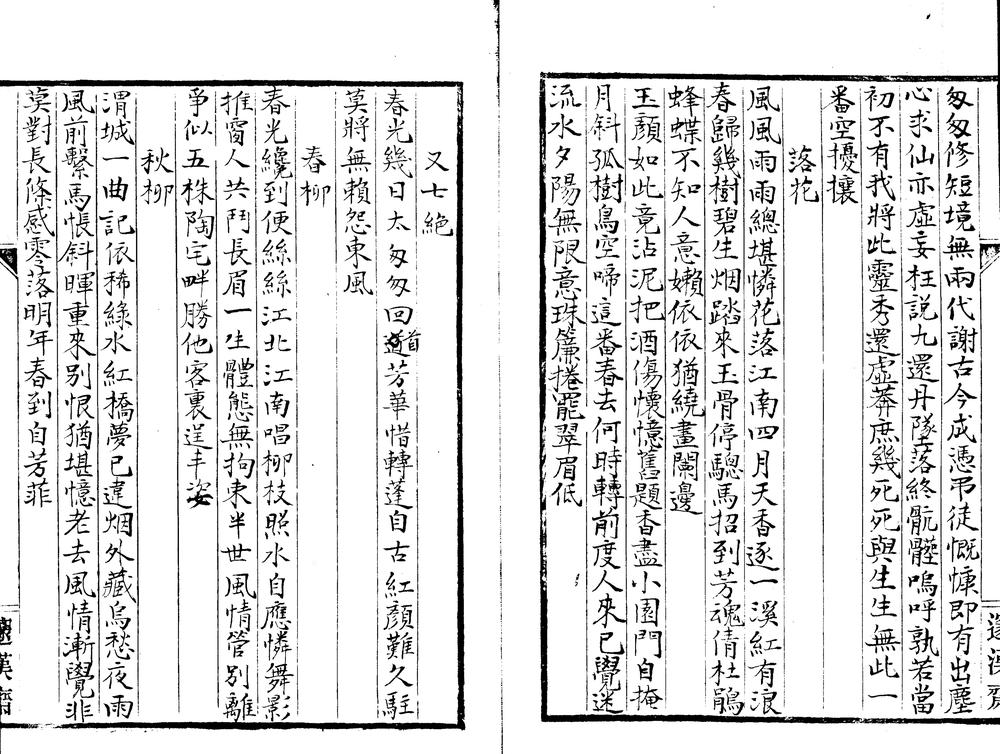 匆匆修短境無兩代謝古今成憑弔徒慨慷即有出塵
心求仙亦虛妄枉說九還丹墜落終骯髒嗚呼孰若當
初不有我將此靈秀還虛莽庶幾死死與生生無此一
番空擾攘
落花
風風雨雨總堪憐花落江南四月天香逐一溪紅有浪
春歸幾樹碧生烟踏來玉骨停驄馬招到芳魂倩杜鵑
蜂蝶不知人意嬾依依猶繞畫闌邊
玉顏如此竟沾泥把酒傷懷憶舊題香盡小園門自掩
月斜孤樹鳥空啼這番春去何時轉前度人來已覺迷
流水夕陽無限意珠簾捲罷翠眉低
又七絕
春光幾日太匆匆回首芳華惜轉蓬自古紅顏難久駐
莫將無賴怨東風
春柳
春光纔到便絲絲江北江南唱柳枝照水自應憐舞影
推窗人共鬥長眉一生體態無拘束半世風情管別離
爭似五株陶宅畔勝他客裏逞丰姿
秋柳
渭城一曲記依稀綠水紅橋夢已違烟外藏烏愁夜雨
風前繫馬悵斜暉重來別恨猶堪憶老去風情漸覺非
莫對長條感零落明年春到自芳菲